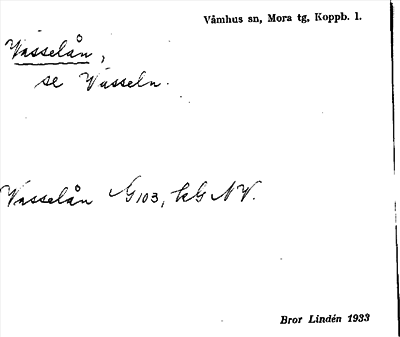 Våmhus sn, Mora tg, Koppb. l.
Vasselån,
se Vasseln.
Vasselån G103, kG NV.
Bror Lindén 1933